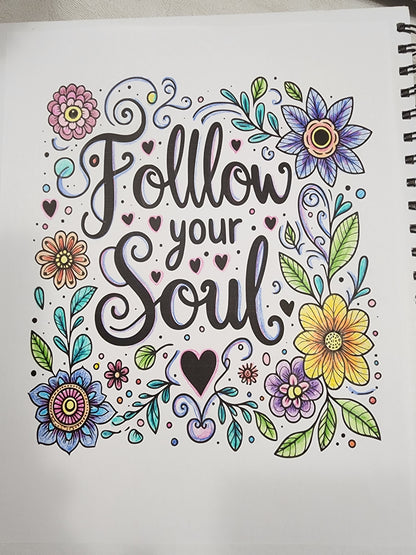 Folllow
your
Soul